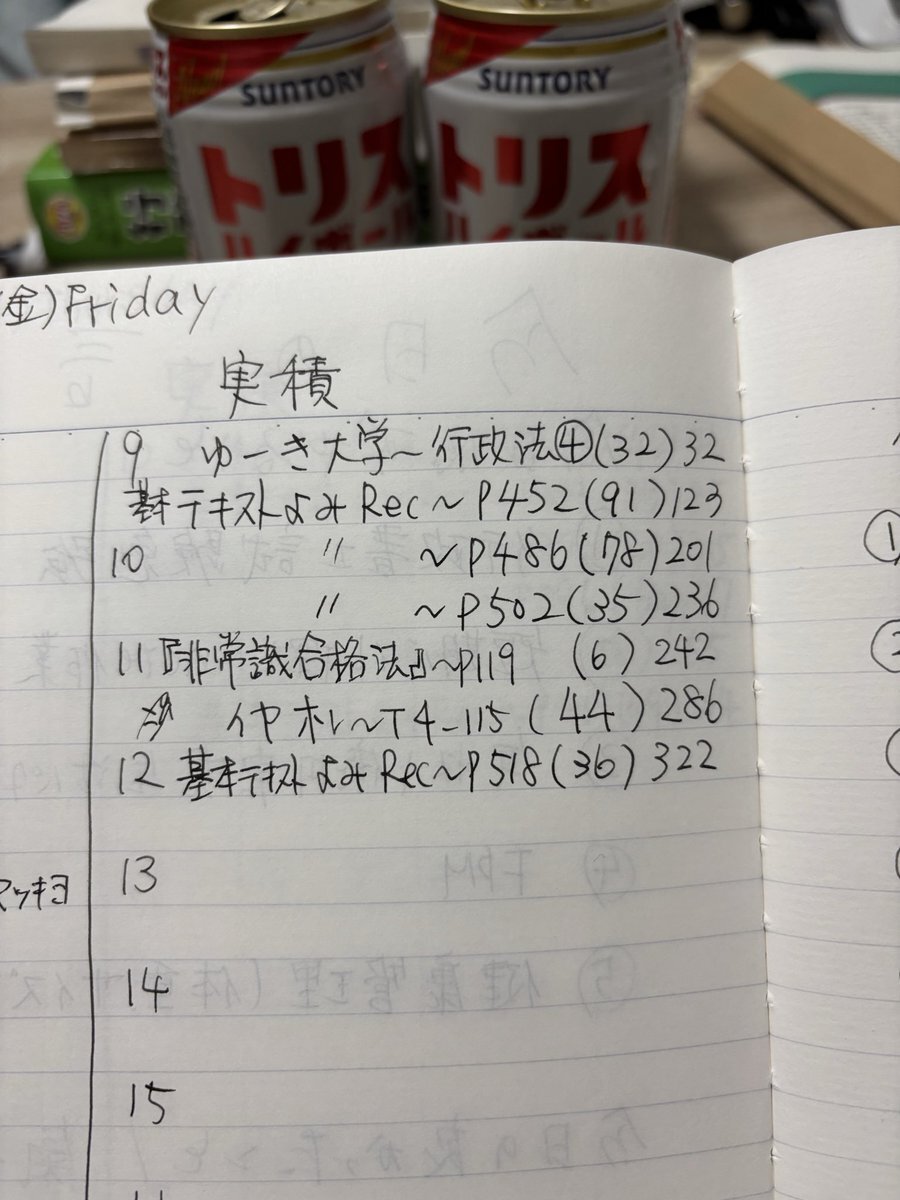 SUNTORY
トリス
ハイボール
SUNTORY
トリス
ハイボール
(金)Friday
実積
9 ゆーき大学~行政法④(32)32
基本テキストよみRec~P452(91)123
10 〃 ~P486(78)201
〃 ~P502(35)236
11『非常識合格法』~P119 (6) 242
イヤホレ~T4-115(44)286
12 基本テキストよみRec~P518(36)322
マッキヨ
13
14
15
①